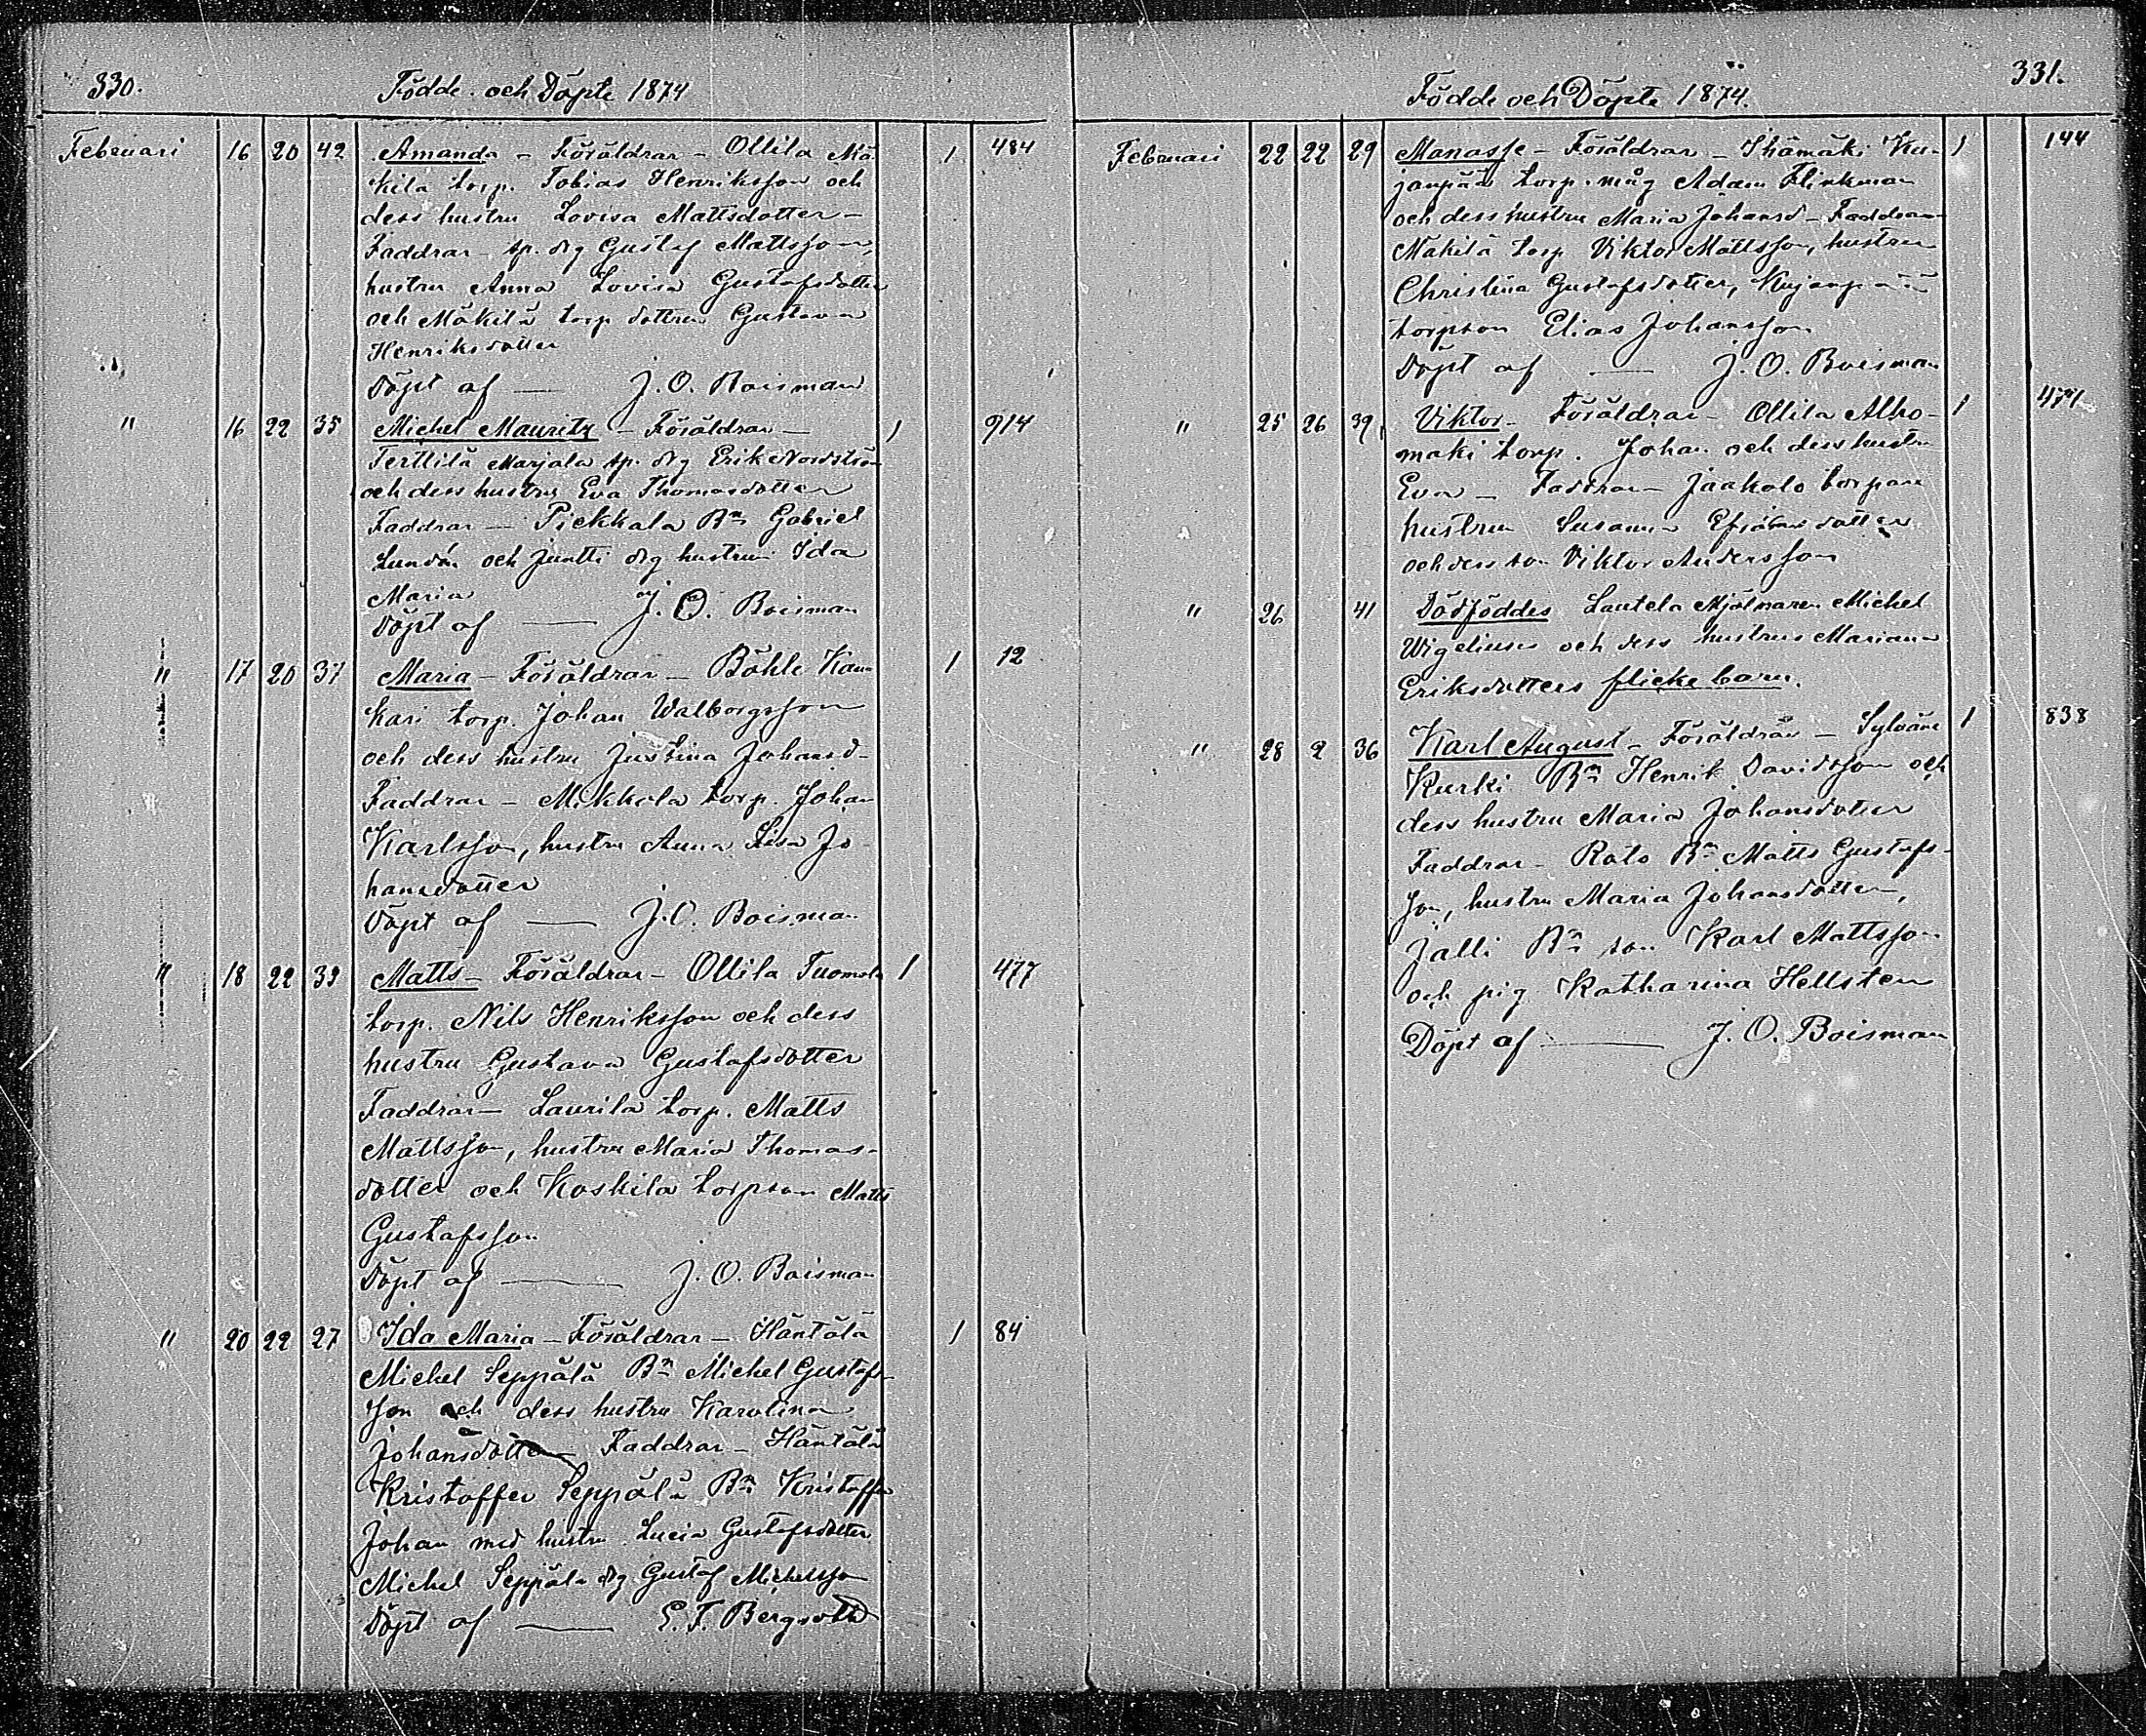 330.
Födde och Döpte 1874
Februari 16 20 42 Amanda - Föräldrar - Ollila Mä- 1 484
kila torp. Tobias Henriksson och
dess hustru Lovisa Mattsdotter -
Faddrar - sp. drg Gustaf Mattsson,
hustru Anna Lovisa Gustafsdotter
och Mäkilä torp dottren Gustava
Henriksdotter
Döpt af — J. O. Boisman
" 16 22 35 Michel Mauritz - Föräldrar - 1 914
Terttilä Marjala sp. drg Erik Nordström
och dess hustru Eva Thomasdotter
Faddrar - Piekkala Bn Gabriel
Lundén och Juntti drg hustrun Ida
Maria
Döpt af — J. O. Boisman
" 17 20 37 Maria - Föräldrar - Böhle Kan- 1 12
kari torp. Johan Walborgsson
och dess hustru Justina Johansd-
Faddrar - Mikkola torp. Johan
Karlsson, hustru Anna Lisa Jo-
hansdotter
Döpt af — J. O. Boisman
" 18 22 39 Matts - Föräldrar - Ollila Tuomola 1 477
torp. Nils Henriksson och dess
hustru Gustava Gustafsdotter
Faddrar - Laurila torp. Matts
Mattsson, hustru Maria Thomas-
dotter och Koskila torpson Matts
Gustafsson
Döpt af — J. O. Boisman
" 20 22 27 Ida Maria - Föräldrar - Häntälä 1 84
Michel Seppälä Bn Michel Gustafs-
son och dess hustru Karolina
Johansdotter Faddrar - Häntälä
Kristoffer Seppälä Bn Kristoffer
Johan med hustru Lucia Gustafsdotter
Michel Seppälä drg Gustaf Michelsson
Döpt af — E. F. Bergroth
331.
Födde och Döpte 1874.
Februari 22 22 29 Manasse - Föräldrar - Ihämäki Ku- 1 144
janpää torp. måg Adam Flinkman
och dess hustru Maria Johansd - Faddrar -
Mäkilä torp Viktor Mattsson, hustru
Christina Gustafsdotter, Kujanpää
torpson Elias Johansson
Döpt af — J. O. Boisman
" 25 26 39 Viktor - Föräldrar - Ollila Alho- 1
maki torp. Johan och dess hustru
Eva - Faddrar - Jaakola torpare
hustrun Susanna dotter
och dess son Viktor Andersson
" 26 41 Dödföddes Lautela Mjölnaren Michel
Wigelius och dess hustrus Mariana
Eriksdotters flicke barn.
" 28 2 36 Karl August - Föräldrar - Sylvänä 1 838
Kurki Bn Henrik Davidsson och
dess hustru Maria Johansdotter
Faddrar - Rato Bn Matts Gustafs-
son, hustru Maria Johansdotter,
Jalli Bn son Karl Mattsson
och pig Katharina Hellsten
Döpt af — J. O. Boisman